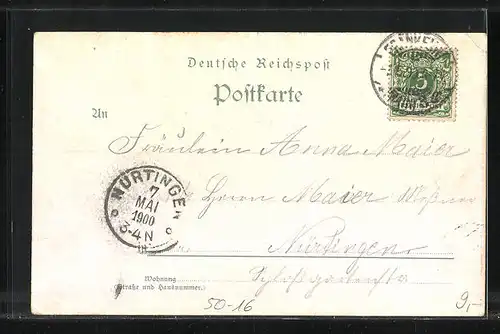 Deutsche Reichspost
Postkarte
An
Fräulein Anna Maier
Herrn Maier
Nürtingen
NÜRTINGEN
7
MAI
1900
3-4 N
Wohnung
(Straße und Hausnummer)
5
50-16
9,-